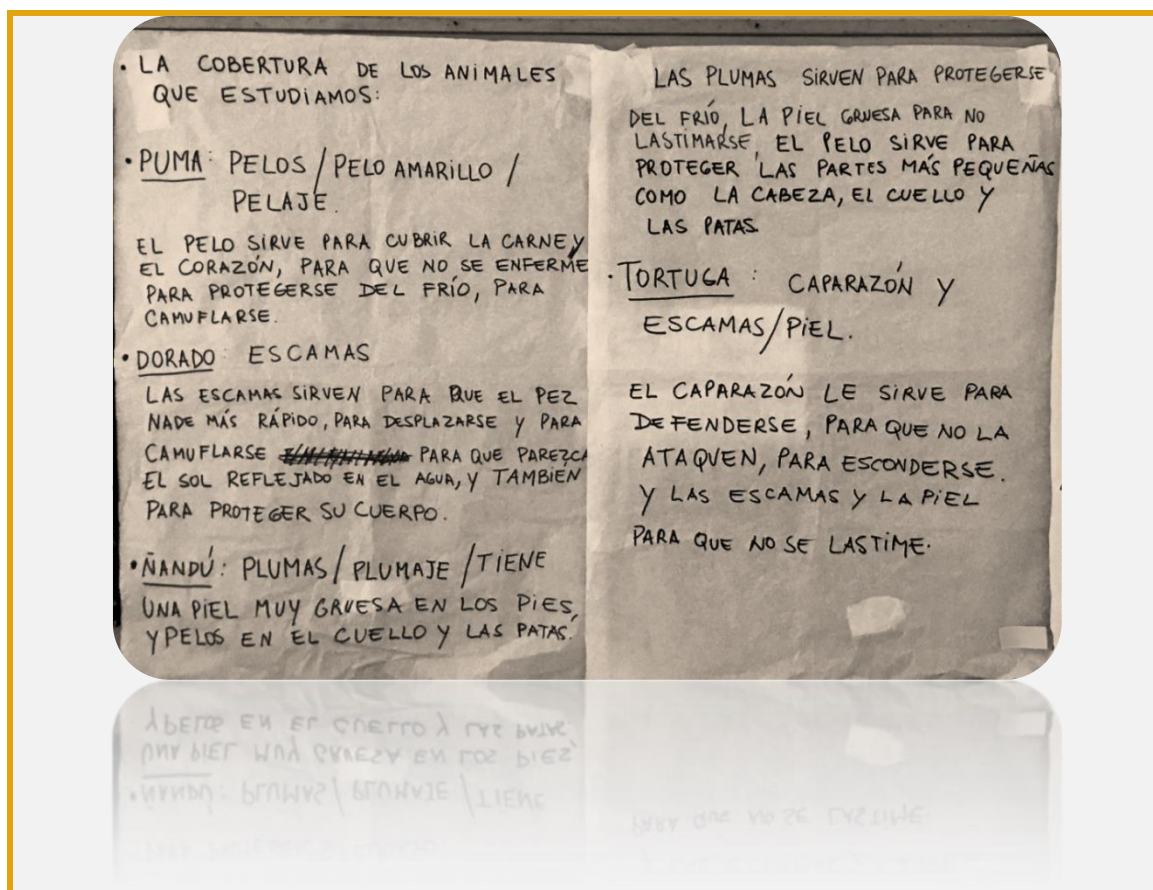 • LA COBERTURA DE LOS ANIMALES
QUE ESTUDIAMOS:
• PUMA: PELOS / PELO AMARILLO /
PELAJE.
EL PELO SIRVE PARA CUBRIR LA CARNE Y
EL CORAZÓN, PARA QUE NO SE ENFERME
PARA PROTEGERSE DEL FRÍO, PARA
CAMUFLARSE.
• DORADO: ESCAMAS
LAS ESCAMAS SIRVEN PARA QUE EL PEZ
NADE MÁS RÁPIDO, PARA DESPLAZARSE Y PARA
CAMUFLARSE PARA QUE PAREZCA
EL SOL REFLEJADO EN EL AGUA, Y TAMBIEN
PARA PROTEGER SU CUERPO.
• ÑANDÚ: PLUMAS / PLUMAJE / TIENE
UNA PIEL MUY GRUESA EN LOS PIES,
Y PELOS EN EL CUELLO Y LAS PATAS.
LAS PLUMAS SIRVEN PARA PROTEGERSE
DEL FRÍO, LA PIEL GRUESA PARA NO
LASTIMARSE, EL PELO SIRVE PARA
PROTEGER LAS PARTES MÁS PEQUEÑAS
COMO LA CABEZA, EL CUELLO Y
LAS PATAS
• TORTUGA: CAPARAZÓN Y
ESCAMAS/PIEL.
EL CAPARAZÓN LE SIRVE PARA
DEFENDERSE, PARA QUE NO LA
ATAQUEN, PARA ESCONDERSE.
Y LAS ESCAMAS Y LA PIEL
PARA QUE NO SE LASTIME.